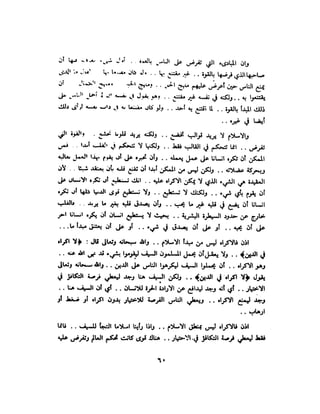 وان المبادىء التي تفرض على الناس بالعدد .. أول شيء فيها أن
صاحبها الذي فرضها بالقوة .. غير مقتنع بها ..
يمنع الناس حين أعرض عليهم منهج الحق .. ومنهج الحق أن
يقتنعوا به .. ولكنه في نفسه غير مقتنع .. وهو يقول في نفسه حتى
ذلك المبدأ بالقوة .. لما اقتنع به أحد .. ولو كان مقتنعا في ذات نفسه لرأى ذلك
أيضا في غيره ..
والاسلام لا يريد قوالب تخضع .. ولكنه يريد قلوبا تخشع . والقوة التي
تفرض .. انما تتحكم في القالب فقط .. ولكنها لا تتحكم في القلب أبدا .. فمن
الممكن أن تكره انسانا على عمل يعمله .. وأن تجبره على أن يقوم بهذا العمل بحاله
وبحركة عضلاته .. ولكن ليس من الممكن أبدا أن تقنع قلبه بأن يعتقد شيئا .. لأن
العقيدة هي الشيء الذي لا يمكن الاكراه عليه .. انك تستطيع أن تكره الانسان على
أن يقوم بأي شيء .. ولكنك لا تستطيع .. ولا تستطيع قوى الدنيا كلها أن تكره
انسانا أن يضع في قلبه غير ما يحب .. وأن يصدق قلبه بغير ما يريد .. فالقلب
خارج عن حدود السيطرة البشرية .. بحيث لا يستطيع انسان أن يكره انسانا آخر
على أن يحبه .. أو على أن يصدق في شيء .. أو على أن يعتنق مبدأ ما...
اذن فالاكراه ليس من مبدأ الاسلام .. والله سبحانه وتعالى قال : ﴿ لا اكراه
في الدين﴾ .. ولا يعقل أن يحمل المسلمون السيف ليقوموا بشيء قد نهى الله عنه ..
وهو الاكراه .. أن يحملوا السيف ليكرهوا الناس على الدين .. والله سبحانه وتعالى
يقول ﴿لا اكراه في الدين﴾ .. ولكن السيف هنا وجد ليعطي فرصة التكافؤ في
الاختيار .. أي أنه وجد ليدافع عن الارادة الحرة للانسان .. أي أن السيف هنا ..
وجد ليمنع الاكراه .. ويعطي الناس الفرصة للاختيار بدون اكراه أو ضغط أو
ارهاب ..
اذن فالاكراه ليس بمنطق الاسلام .. واذا رأينا اسلاما التجأ للسيف .. فانما
فقط ليعطي فرصة التكافؤ في الاختيار .. هناك قوى كانت تحكم العالم وتفرض عليه
٦٠